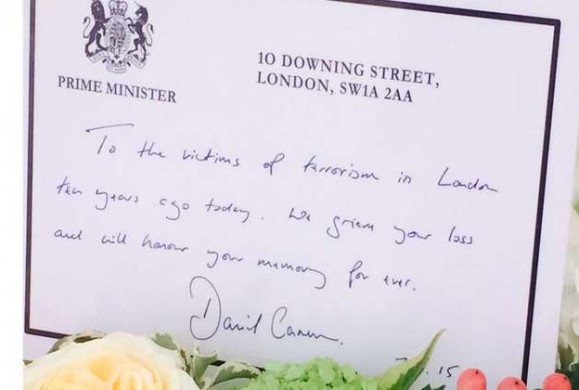 PRIME MINISTER
10 DOWNING STREET,
LONDON, SW1A 2AA
To the victims of terrorism in London
ten years ago today. We grieve your loss
and will honour your memory for ever.
David Cameron.
15